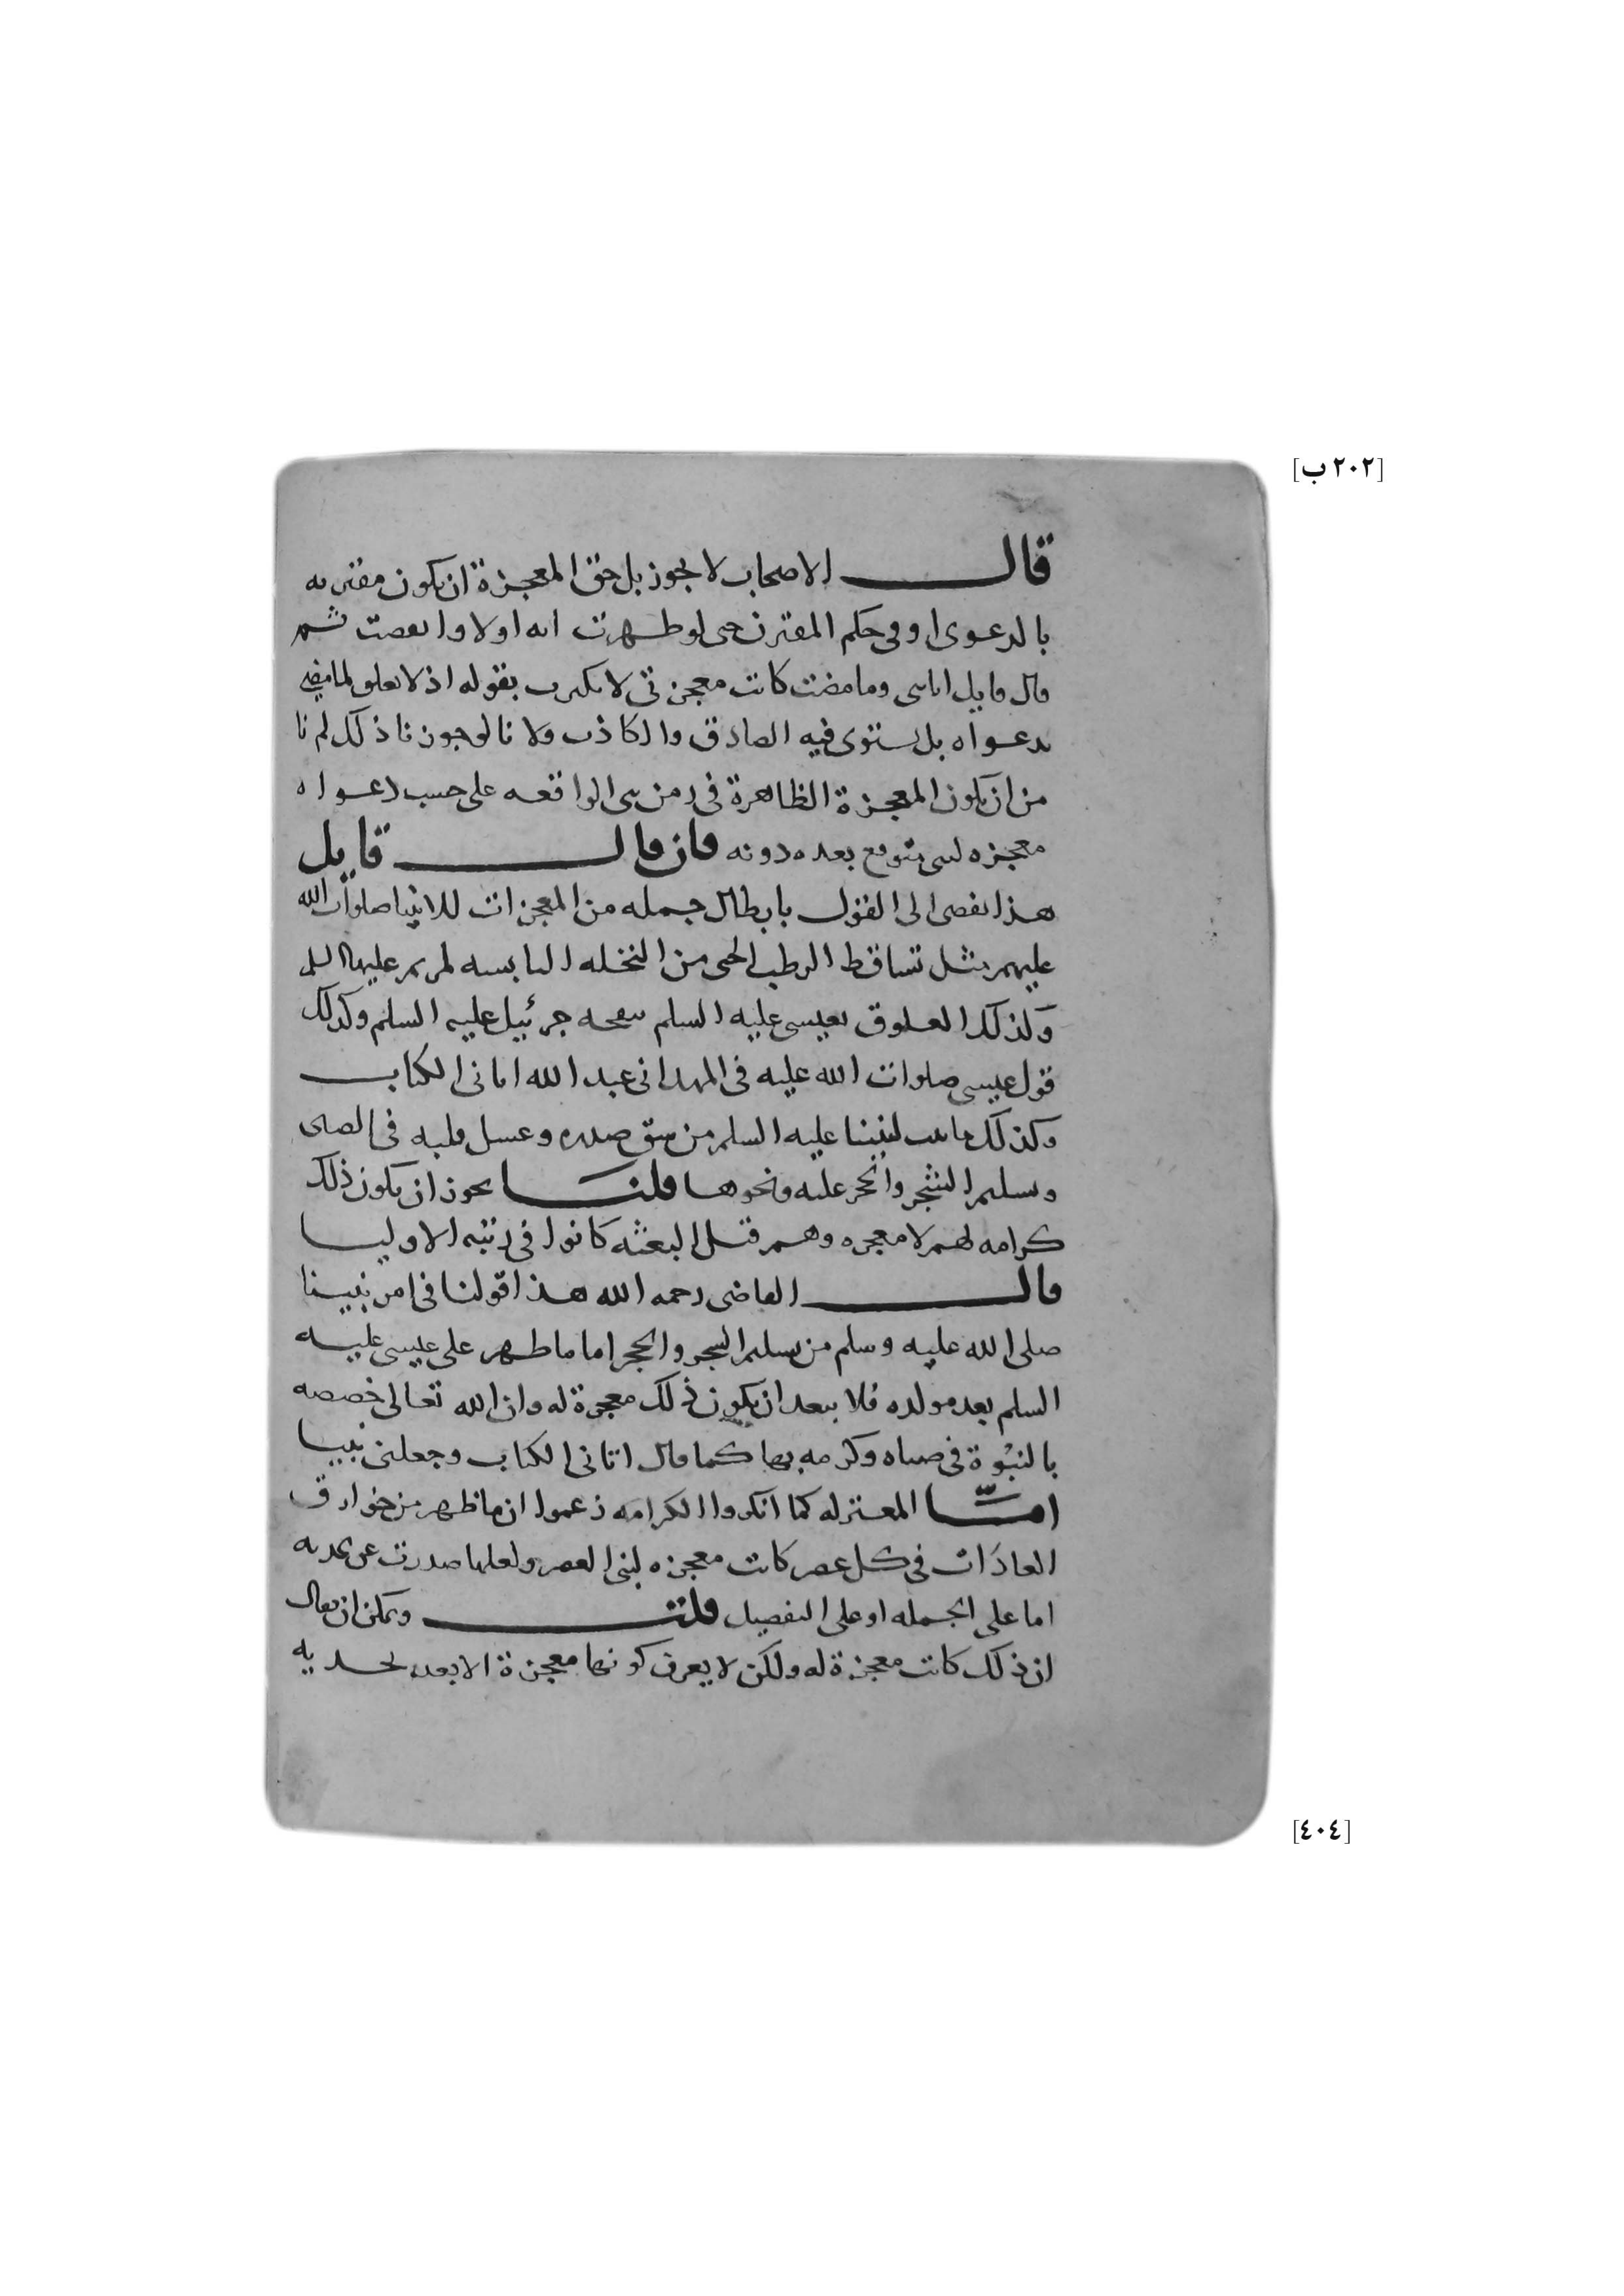 [٢٠٢ ب]
قال الاصحاب لا يجوز بل حق المعجزة ان يكون مقترنه
بالدعوى او في حكم المقترن حتى لو ظهرت ايه اولا وانقضت ثم
قال قايل انا نبي وما مضت كانت معجزتي لا يكترث بقوله اذ لا تعلق لما مضى
بدعواه بل يستوي فيه الصادق والكاذب ولانا لو جوزنا ذلك لم نا
من ان يكون المعجزة الظاهرة في زمن نبي الواقعه على حسب دعواه
معجزه لنبي يتوقع بعده دونه فان قال قايل
هذا يفضي الى القول بابطال جمله من المعجزات للانبيا صلوات الله
عليهم مثل تساقط الرطب الجني من النخله اليابسه لمريم عليها السلم
وكذلك العلوق بعيسى عليه السلم بنفخه جبرئيل عليه السلم وكذلك
قول عيسى صلوات الله عليه في المهد اني عبد الله اتاني الكتاب
وكذلك ما ثبت لنبينا عليه السلم من شق صدره وغسل قلبه في الصبى
وتسليم الشجر والحجر عليه ونحوها قلنا يجوز ان يكون ذلك
كرامه لهم لا معجزه وهم قبل البعثه كانوا في رتبه الاوليا
قال القاضي رحمه الله هذا قولنا في امر نبينا
صلى الله عليه وسلم من تسليم الشجر والحجر اما ما ظهر على عيسى عليه
السلم بعد مولده فلا يبعد ان يكون ذلك معجزة له وان الله تعالى خصصه
بالنبوة في صباه وكرمه بها كما قال اتاني الكتاب وجعلني نبيا
امّا المعتزله كما انكروا الكرامه زعموا ان ما ظهر من خوارق
العادات في كل عصر كانت معجزه لنبي العصر ولعلها صدرت عن تحديه
اما على الجمله او على التفصيل قلت ويمكن ان يقال
ان ذلك كانت معجزة له ولكن لا يعرف كونها معجزة الا بعد تحديه
[٤٠٤]